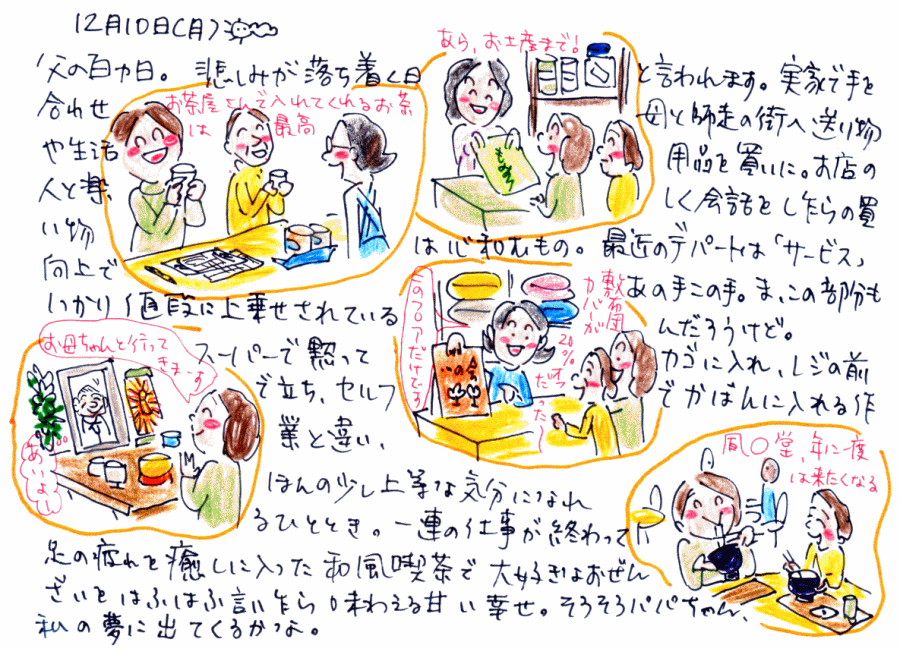 12月10日(月)
父の百カ日。悲しみが落ち着く日と言われます。実家で手を
合わせ母と師走の街へ、送り物
や生活用品を買いに。お店の
人と楽しく会話をしたらの買
い物は心和むもの。最近のデパートは「サービス」
向上であの手この手。ま、この部分も
しっかり値段に上乗せされているんだろうけど。
スーパーで黙ってカゴに入れ、レジの前
で立ち、セルフでかばんに入れる作
業と違い、
ほんの少し上等な気分になれ
るひととき。一連の仕事が終わって
足の疲れを癒しに入った和風喫茶で大好きなおぜん
ざいをはふはふ言いながら味わえる甘い幸せ。そろそろパパちゃん、
私の夢に出てくるかなぁ。
お茶屋さんで入れてくれるお茶
は最高
あら、お土産まで!
このフロアだけです
敷布団
カバーが
20%
お母ちゃんと行って
きまーす
あいよ
風〇堂、年に一度
は来たくなる